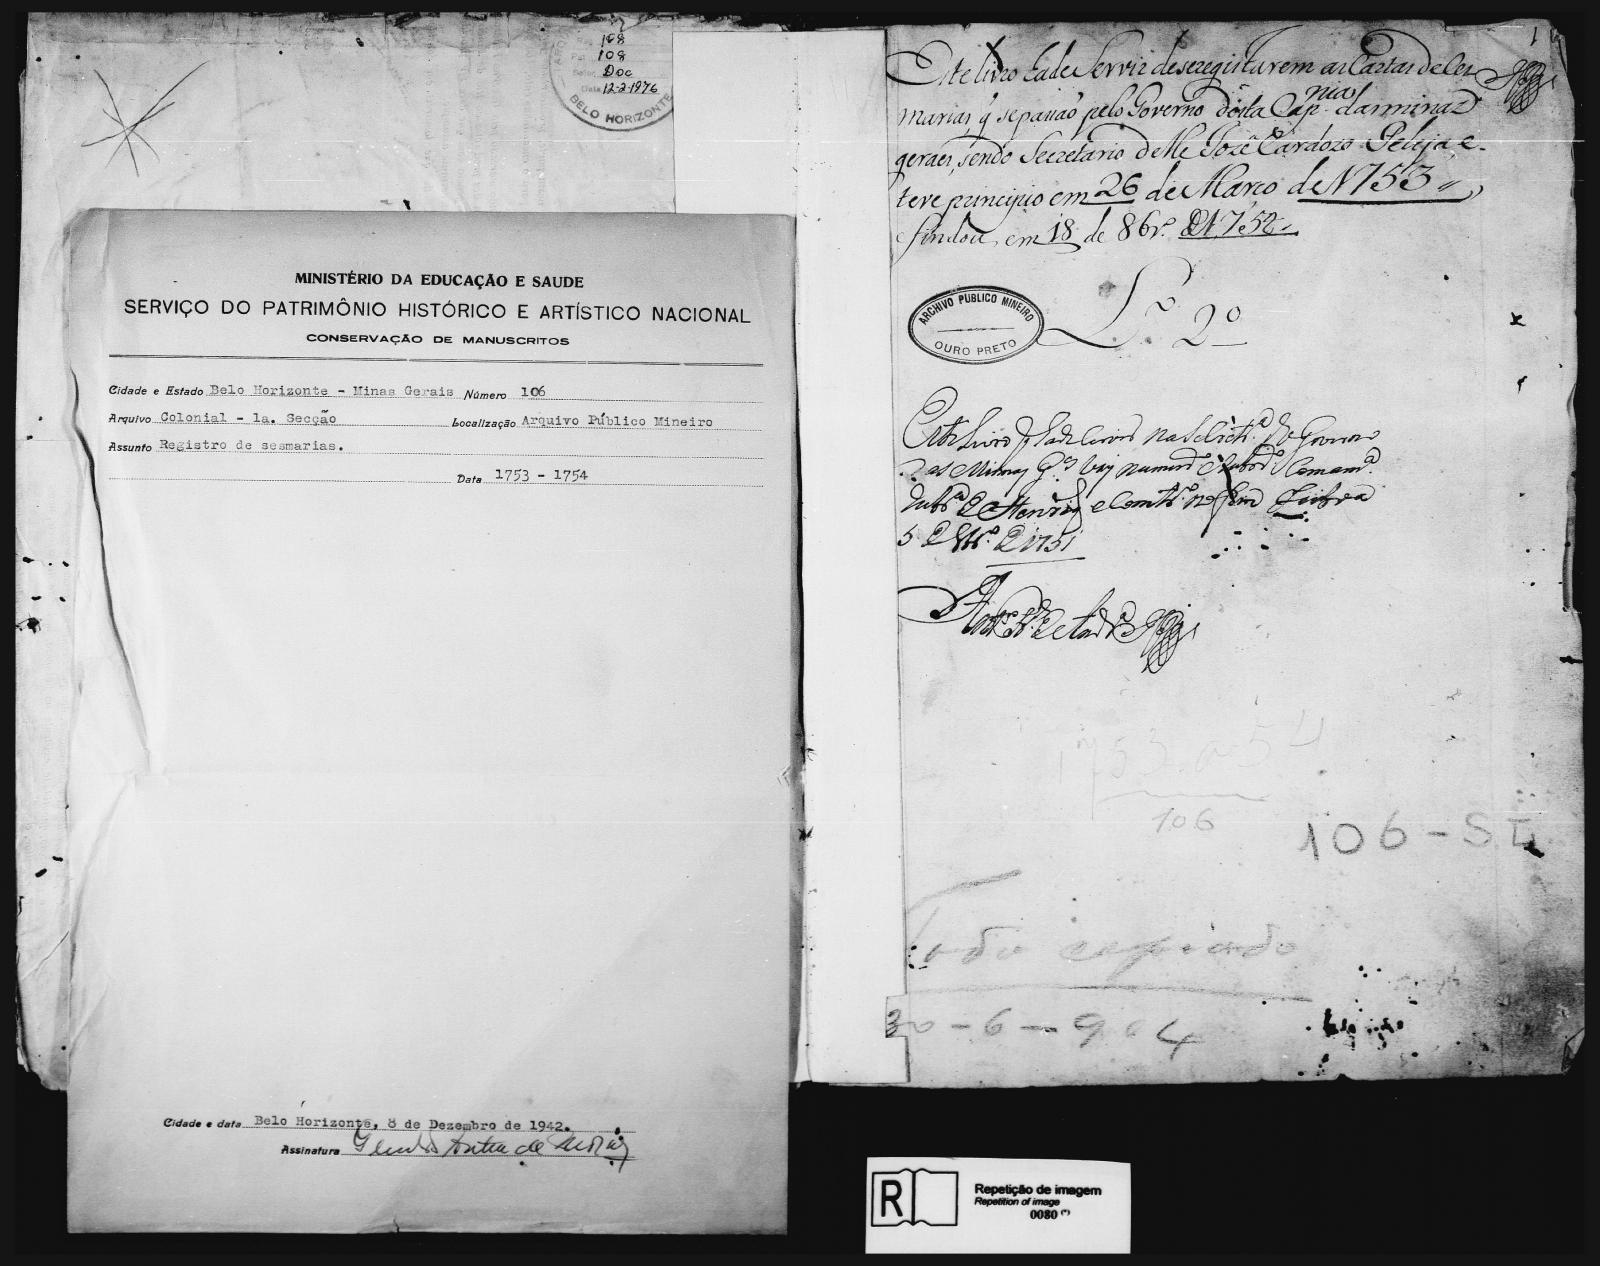 108
108
Doc
Data 12-2-1976
BELO HORIZONTE
MINISTÉRIO DA EDUCAÇÃO E SAUDE
SERVIÇO DO PATRIMÔNIO HISTÓRICO E ARTÍSTICO NACIONAL
CONSERVAÇÃO DE MANUSCRITOS
Cidade e Estado Belo Horizonte - Minas Gerais Número 106
Arquivo Colonial - 1a. Secção Localização Arquivo Público Mineiro
Assunto Registro de sesmarias.
Data 1753 - 1754
Cidade e data Belo Horizonte, 8 de Dezembro de 1942.
Assinatura
1
Este livro hade Servir de se registarem as Cartas de Ses
marias q̃ se pasaõ pelo Governo desta Cap.nia das minaz
geraes, sendo Secretario delle Jozê Cardozo Peleja e
teve principio em 26 de Março de 1753
findou em 18 de 8br.o D 1752
L.o 2o
ARCHIVO PUBLICO MINEIRO
OURO PRETO
Este Livro q̃ hade servir na Secret.a do Governo
das Minas G.es vay numerd.o e rubrd.o
Lisboa
5 D 1751
1753 a 54
106
106 - SG
Todo copiado
30 - 6 - 904
R
Repetição de imagem
Repetition of image
0080 (*)